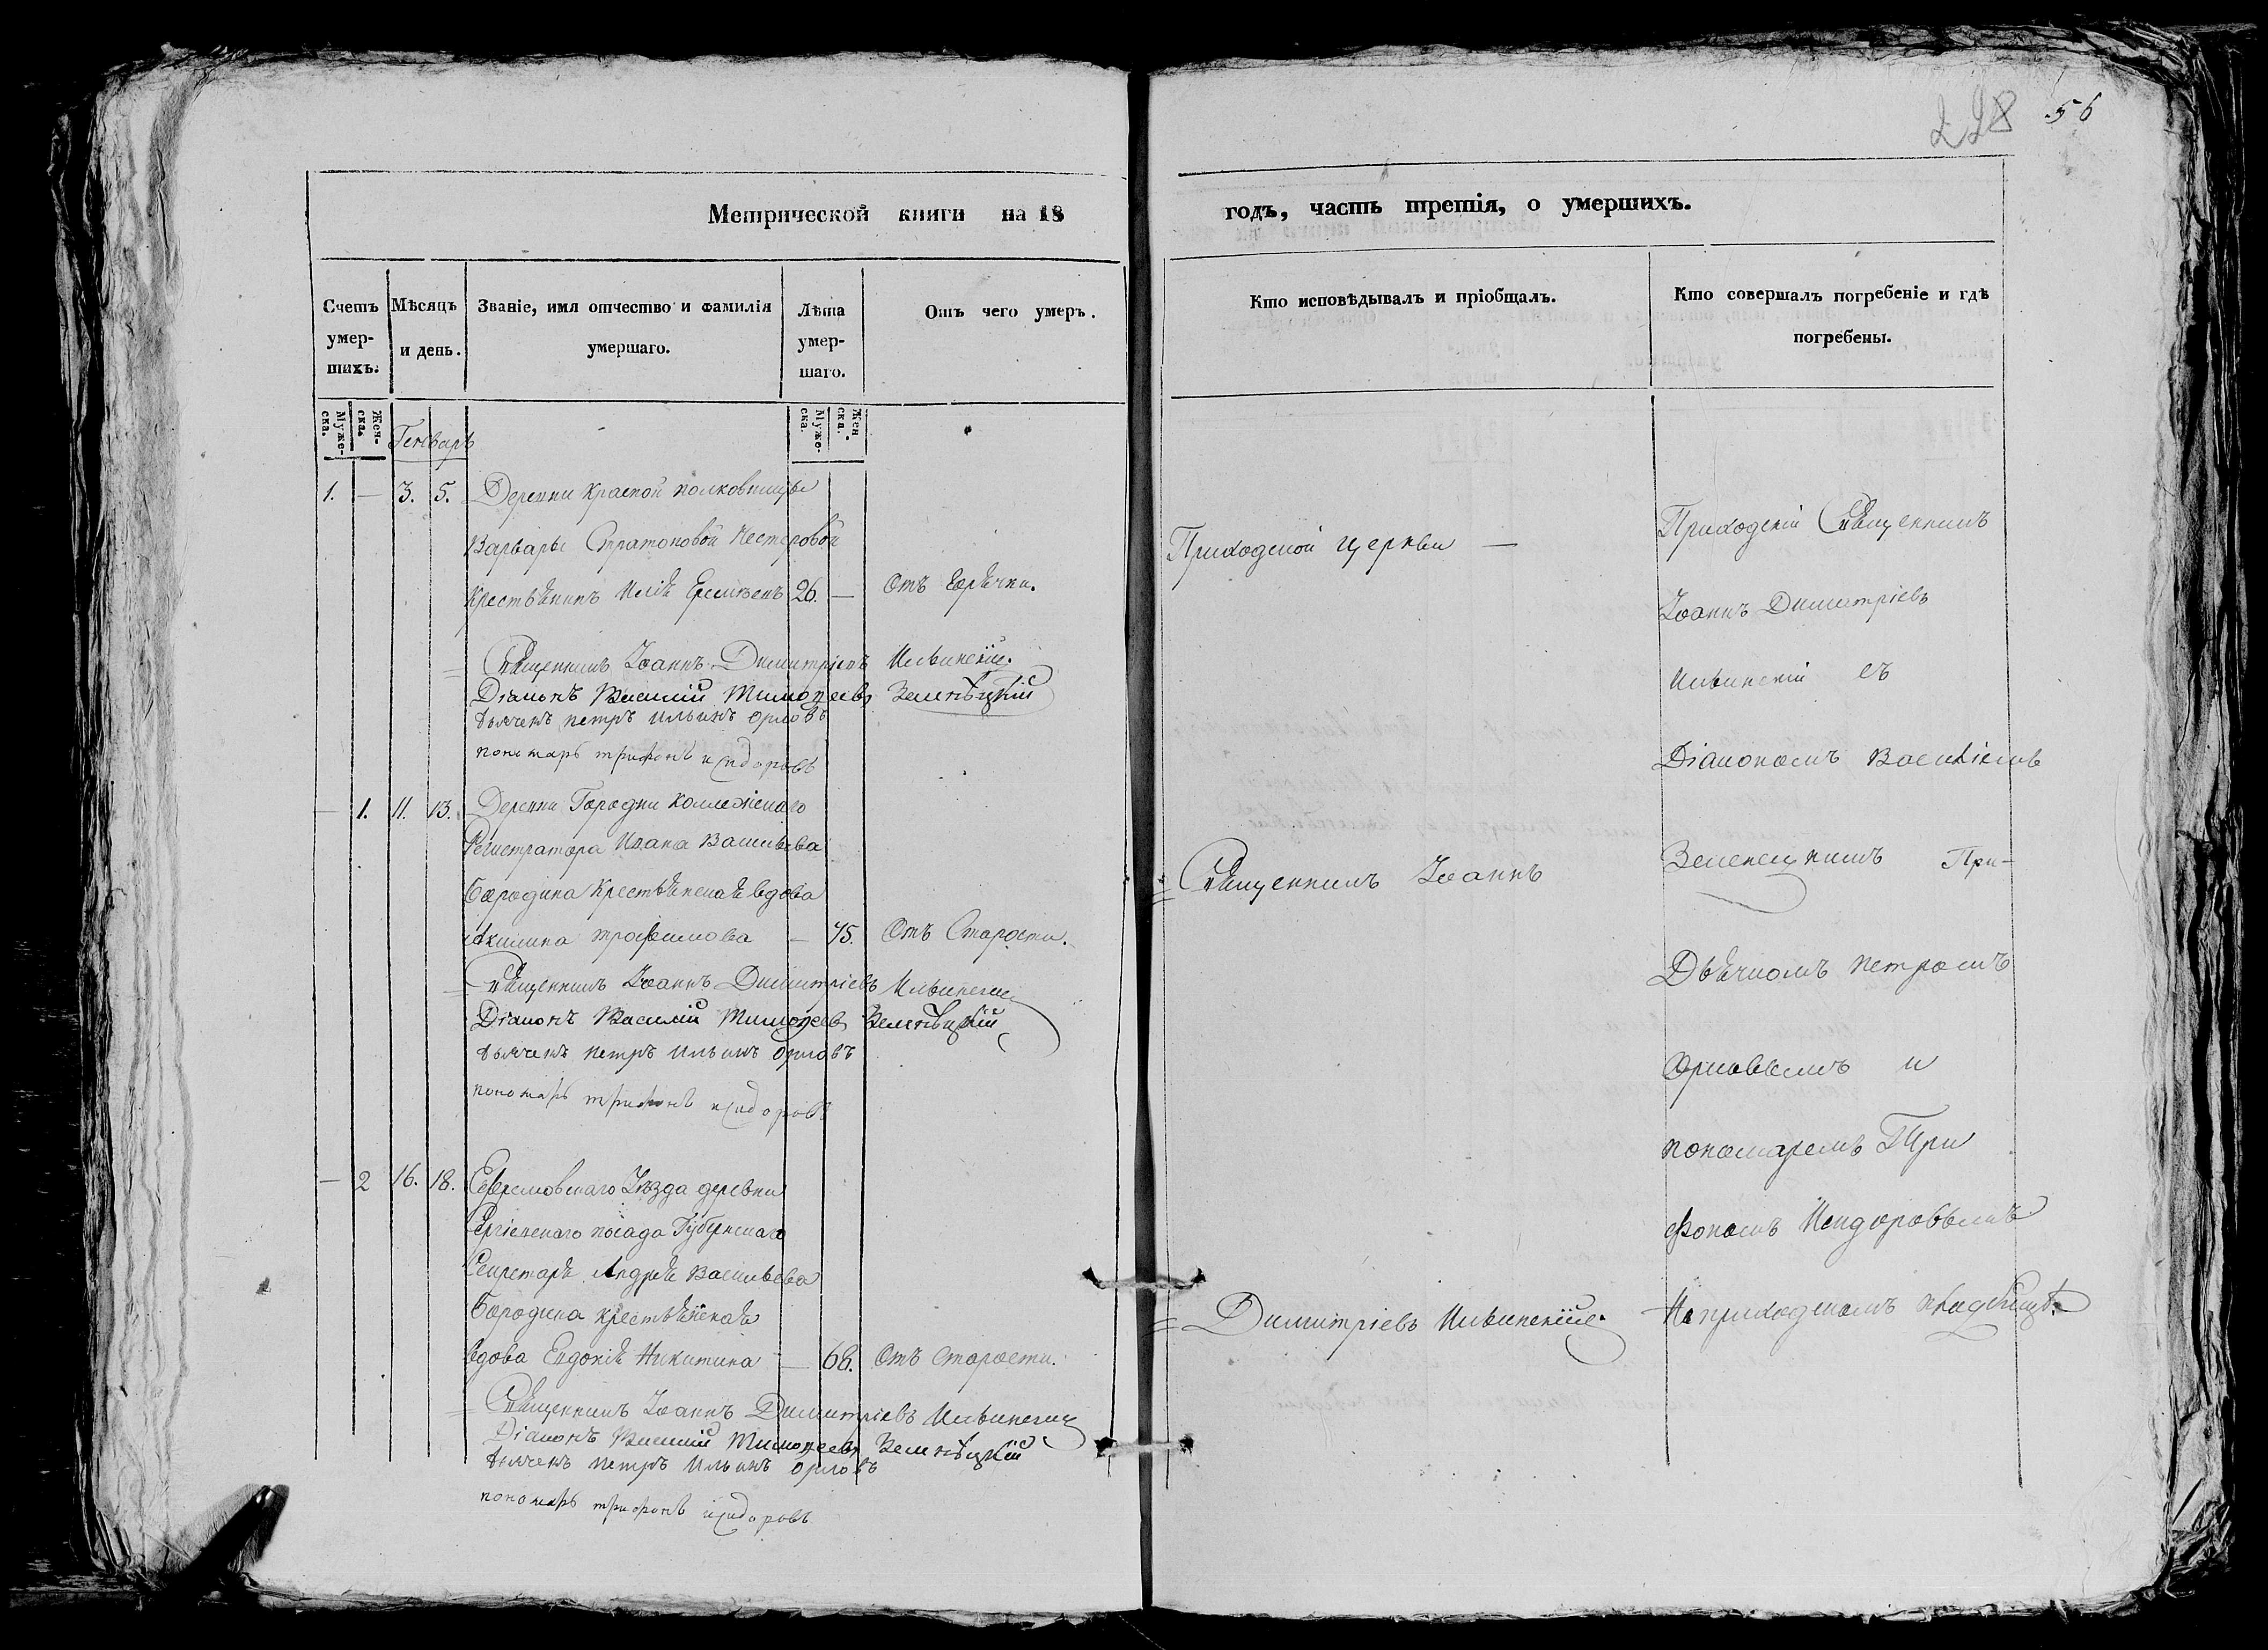 228 56
Метрической книги на 18
годъ, часть третія, о умершихъ.
Счетъ умер-шихъ.
Мѣсяцъ и день.
Званіе, имя отчество и фамилія умершаго.
Лѣта умер-шаго.
Отъ чего умеръ.
Кто исповѣдывалъ и пріобщалъ.
Кто совершалъ погребеніе и гдѣ погребены.
Муже-ска.
Жен-ска.
Генварь
Муже-ска.
Жен-ска.
1. — 3. 5. Деревни Красной полковницы
Варвары Стратоновой Нестеровой
Крестьянинъ Илія 26. — Отъ Горячки.
Священникъ Іоаннъ Димитріевъ Ильинскій.
Діаконъ Василий Тимофеевъ Зеленѣцкій
дьячекъ петръ Ильинъ орловъ
пономарь трифонъ исидоровъ
— 1. 11. 13. Деревни Городни Коллежскаго
Регистратора Ивана Васильева
Бородина Крестьянская вдова
Акилина трофимова — 75. Отъ Старости.
Священникъ Іоаннъ Димитріевъ Ильинскій
Діаконъ Василий Тимофеевъ Зеленѣцкій
дьячекъ петръ Ильинъ орловъ
пономарь трифонъ исидоровъ
— 2 16. 18. Ефремовскаго Уѣзда деревни
Сергіевскаго посада Губернскаго
Секретаря Андрея Васильева
Бородина крестьянская
вдова Евдокія Никитина — 68. Отъ старости.
Священникъ Іоаннъ Димитріевъ Ильинскій
Діаконъ Василий Тимофеевъ Зеленѣцкій
дьячекъ петръ Ильинъ орловъ
пономарь трифонъ исидоровъ
Приходской церкви —
Священникъ Іоаннъ
Димитріевъ Ильинскій.
Приходскій Священникъ
Іоаннъ Димитріевъ
Ильинскій съ
Діакономъ Василіемъ
Зеленецкимъ При-
Дьячкомъ петромъ
Орловымъ и
пономаремъ Три
фономъ Исидоровымъ
На приходскомъ кладбищѣ.